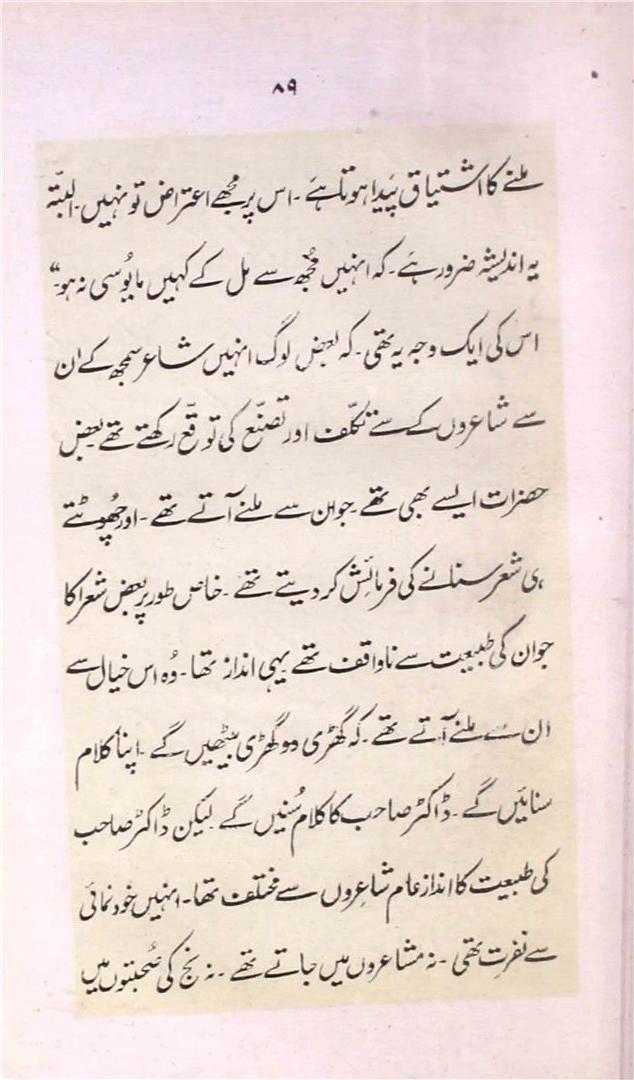 ۸۹
ملنے کا اشتیاق پَیدا ہوتا ہَے ۔ اس پر مجھے اعتراض تو نہیں ۔ البتّہ
یہ اندیشہ ضرور ہَے ۔ کہ انہیں مُجھ سے مل کے کہیں مایُوسی نہ ہو ۔“
اس کی ایک وجہ یہ تھی ۔ کہ بعض لوگ انہیں شاعر سمجھ کے ان
سے شاعروں کے سے تکلّف اور تصنّع کی توقّع رکھتے تھے بعض
حضرات ایسے بھی تھے ۔ جو ان سے ملنے آتے تھے ۔ اور چھُوٹتے
ہی شعر سنانے کی فرمائش کر دیتے تھے ۔ خاص طور پر بعض شعرا کا
جو ان کی طبیعت سے ناواقف تھے یہی انداز تھا ۔ وُہ اس خیال سے
ان سے ملنے آتے تھے ۔ کہ گھڑی دو گھڑی بیٹھیں گے ۔ اپنا کلام
سنائیں گے ۔ ڈاکٹر صاحب کا کلام سُنیں گے لیکن ڈاکٹر صاحب
کی طبیعت کا انداز عام شاعِروں سے مختلف تھا ۔ انہیں خود نمائی
سے نفرت تھی ۔ نہ مشاعروں میں جاتے تھے ۔ نہ نج کی صُحبتوں میں